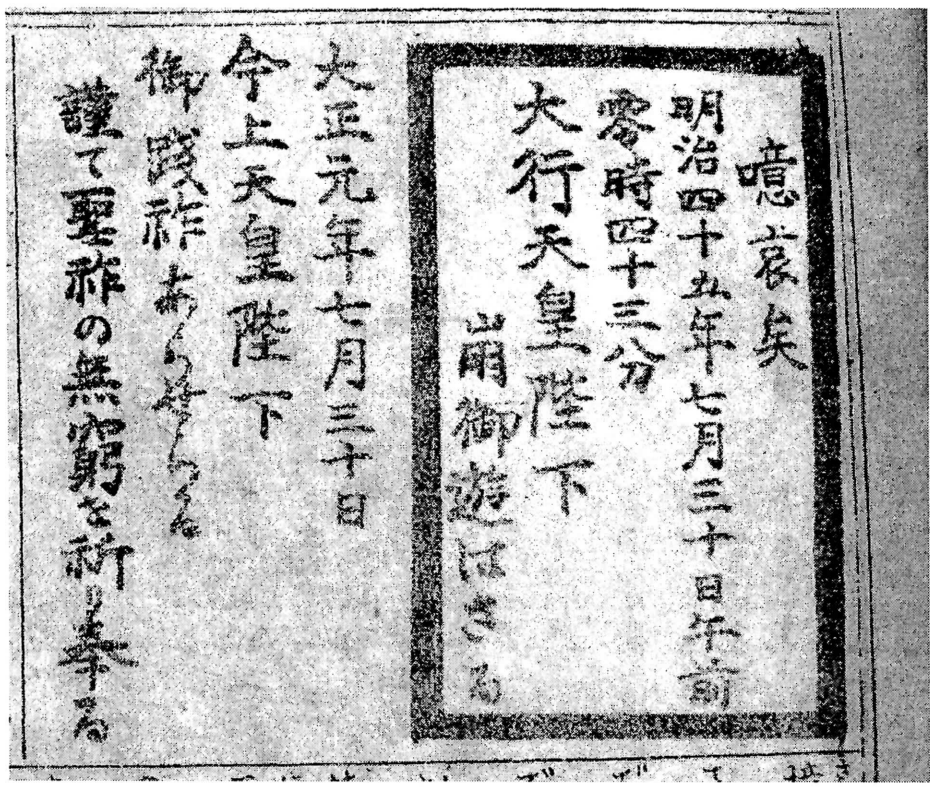 噫哀矣
明治四十五年七月三十日午前
零時四十三分
大行天皇陛下
崩御遊はさる
大正元年七月三十日
今上天皇陛下
御践祚あらせらる
謹て聖祚の無窮を祈り奉る